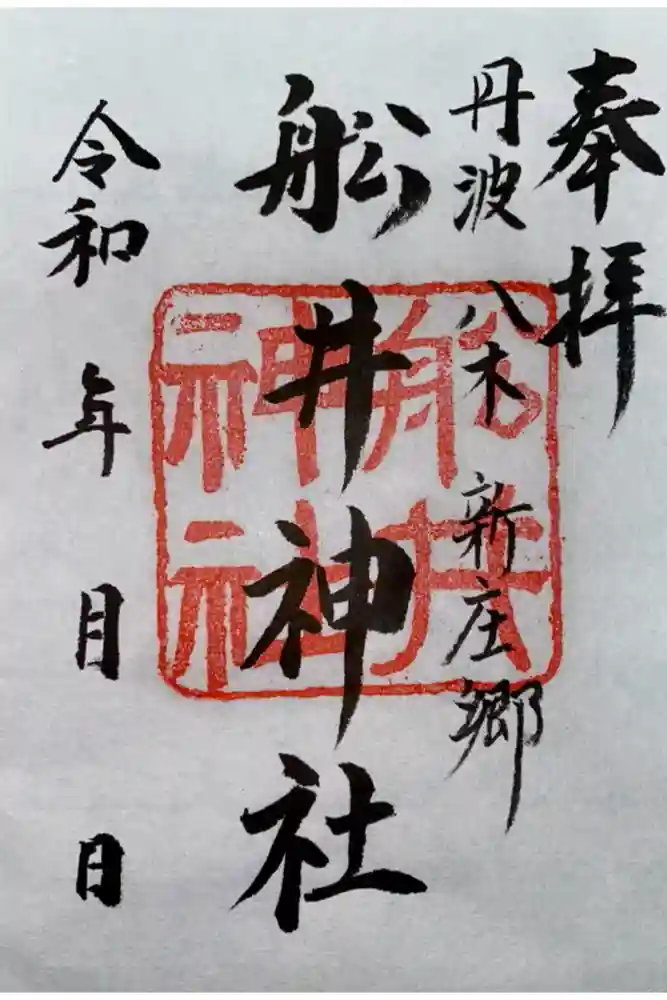 奉拝
丹波 八木 新庄郷
舩井神社
船井
神社
令和 年 月 日